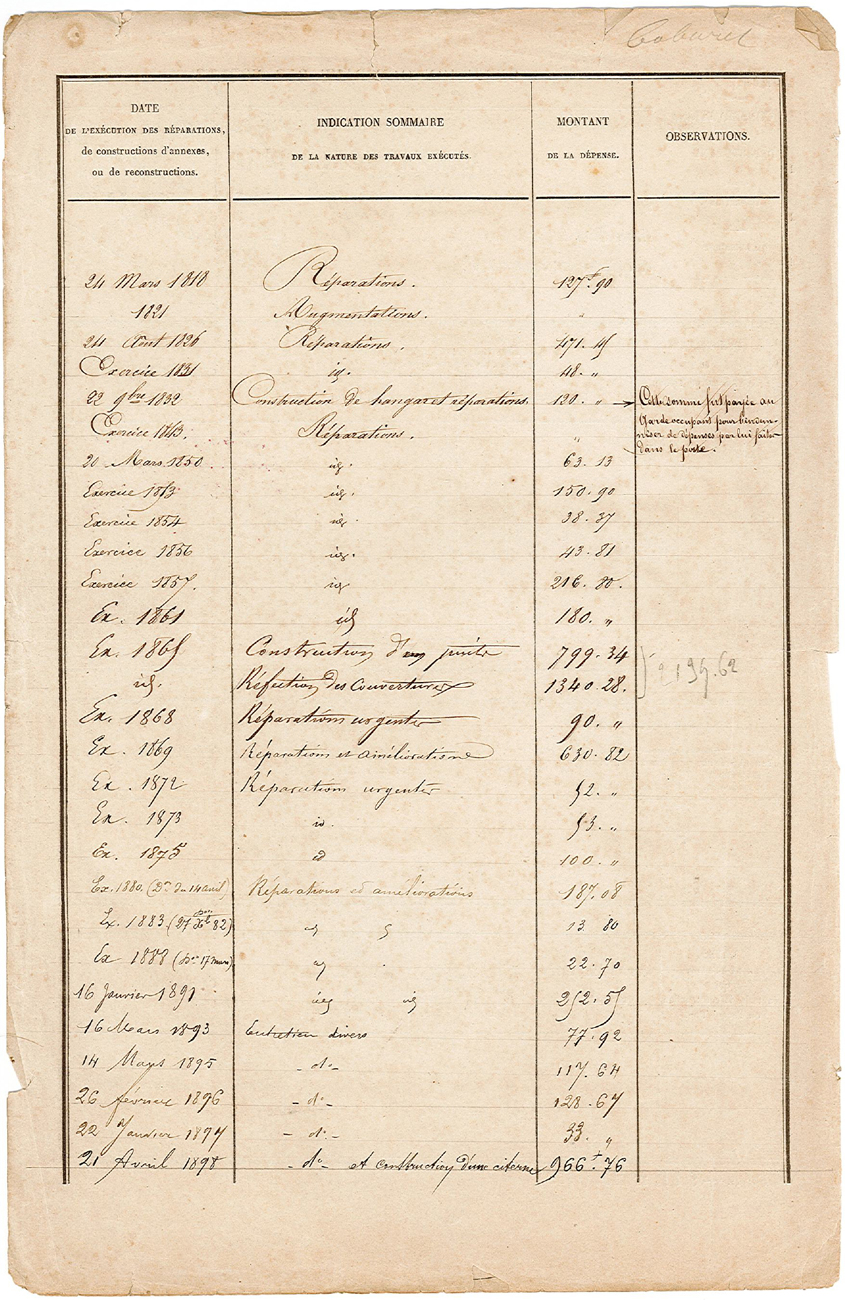 Cabaret
DATE
DE L'EXÉCUTION DES RÉPARATIONS,
de constructions d'annexes,
ou de reconstructions.
INDICATION SOMMAIRE
DE LA NATURE DES TRAVAUX EXÉCUTÉS.
MONTANT
DE LA DÉPENSE.
OBSERVATIONS.
24 Mars 1818 Réparations. 127f.90
1821 Augmentations. "
24 Août 1826 Réparations. 471.45
Exercice 1831 id. 48. "
22 9bre 1832 Construction de hangar et réparations. 120. "
Cette somme fut payée au
Garde occupant pour l'indem-
niser de dépenses par lui faites
dans le poste.
Exercice 1843. Réparations. "
20 Mars 1850. id. 63.13
Exercice 1853 id. 150.90
Exercice 1854 id. 38.37
Exercice 1856 id. 43.81
Exercice 1857. id 216.80.
Ex. 1861 id 180. "
Ex. 1865 Construction d'un puits 799.34
id. Réfection des couvertures 1340.28.
2139.62
Ex. 1868 Réparations urgentes 90. "
Ex. 1869 Réparations et améliorations 630.82
Ex. 1872 Réparations urgentes 52. "
Ex. 1873 id. 53. "
Ex. 1875 id 100. "
Ex. 1880. (Don du 14 avril) Réparations et améliorations 187.08
Ex. 1883 (27 Xbre 82) id 13.80
Ex 1888 (Don 17 mars) id 22.70
16 Janvier 1891 id id 252.55
16 Mars 1893 Entretien divers 77.92
14 Mars 1895 - do - 117.64
26 février 1896 - do - 128.67
22 Janvier 1897 - do - 33. "
21 Avril 1898 - do - et construction d'une citerne 966f.76